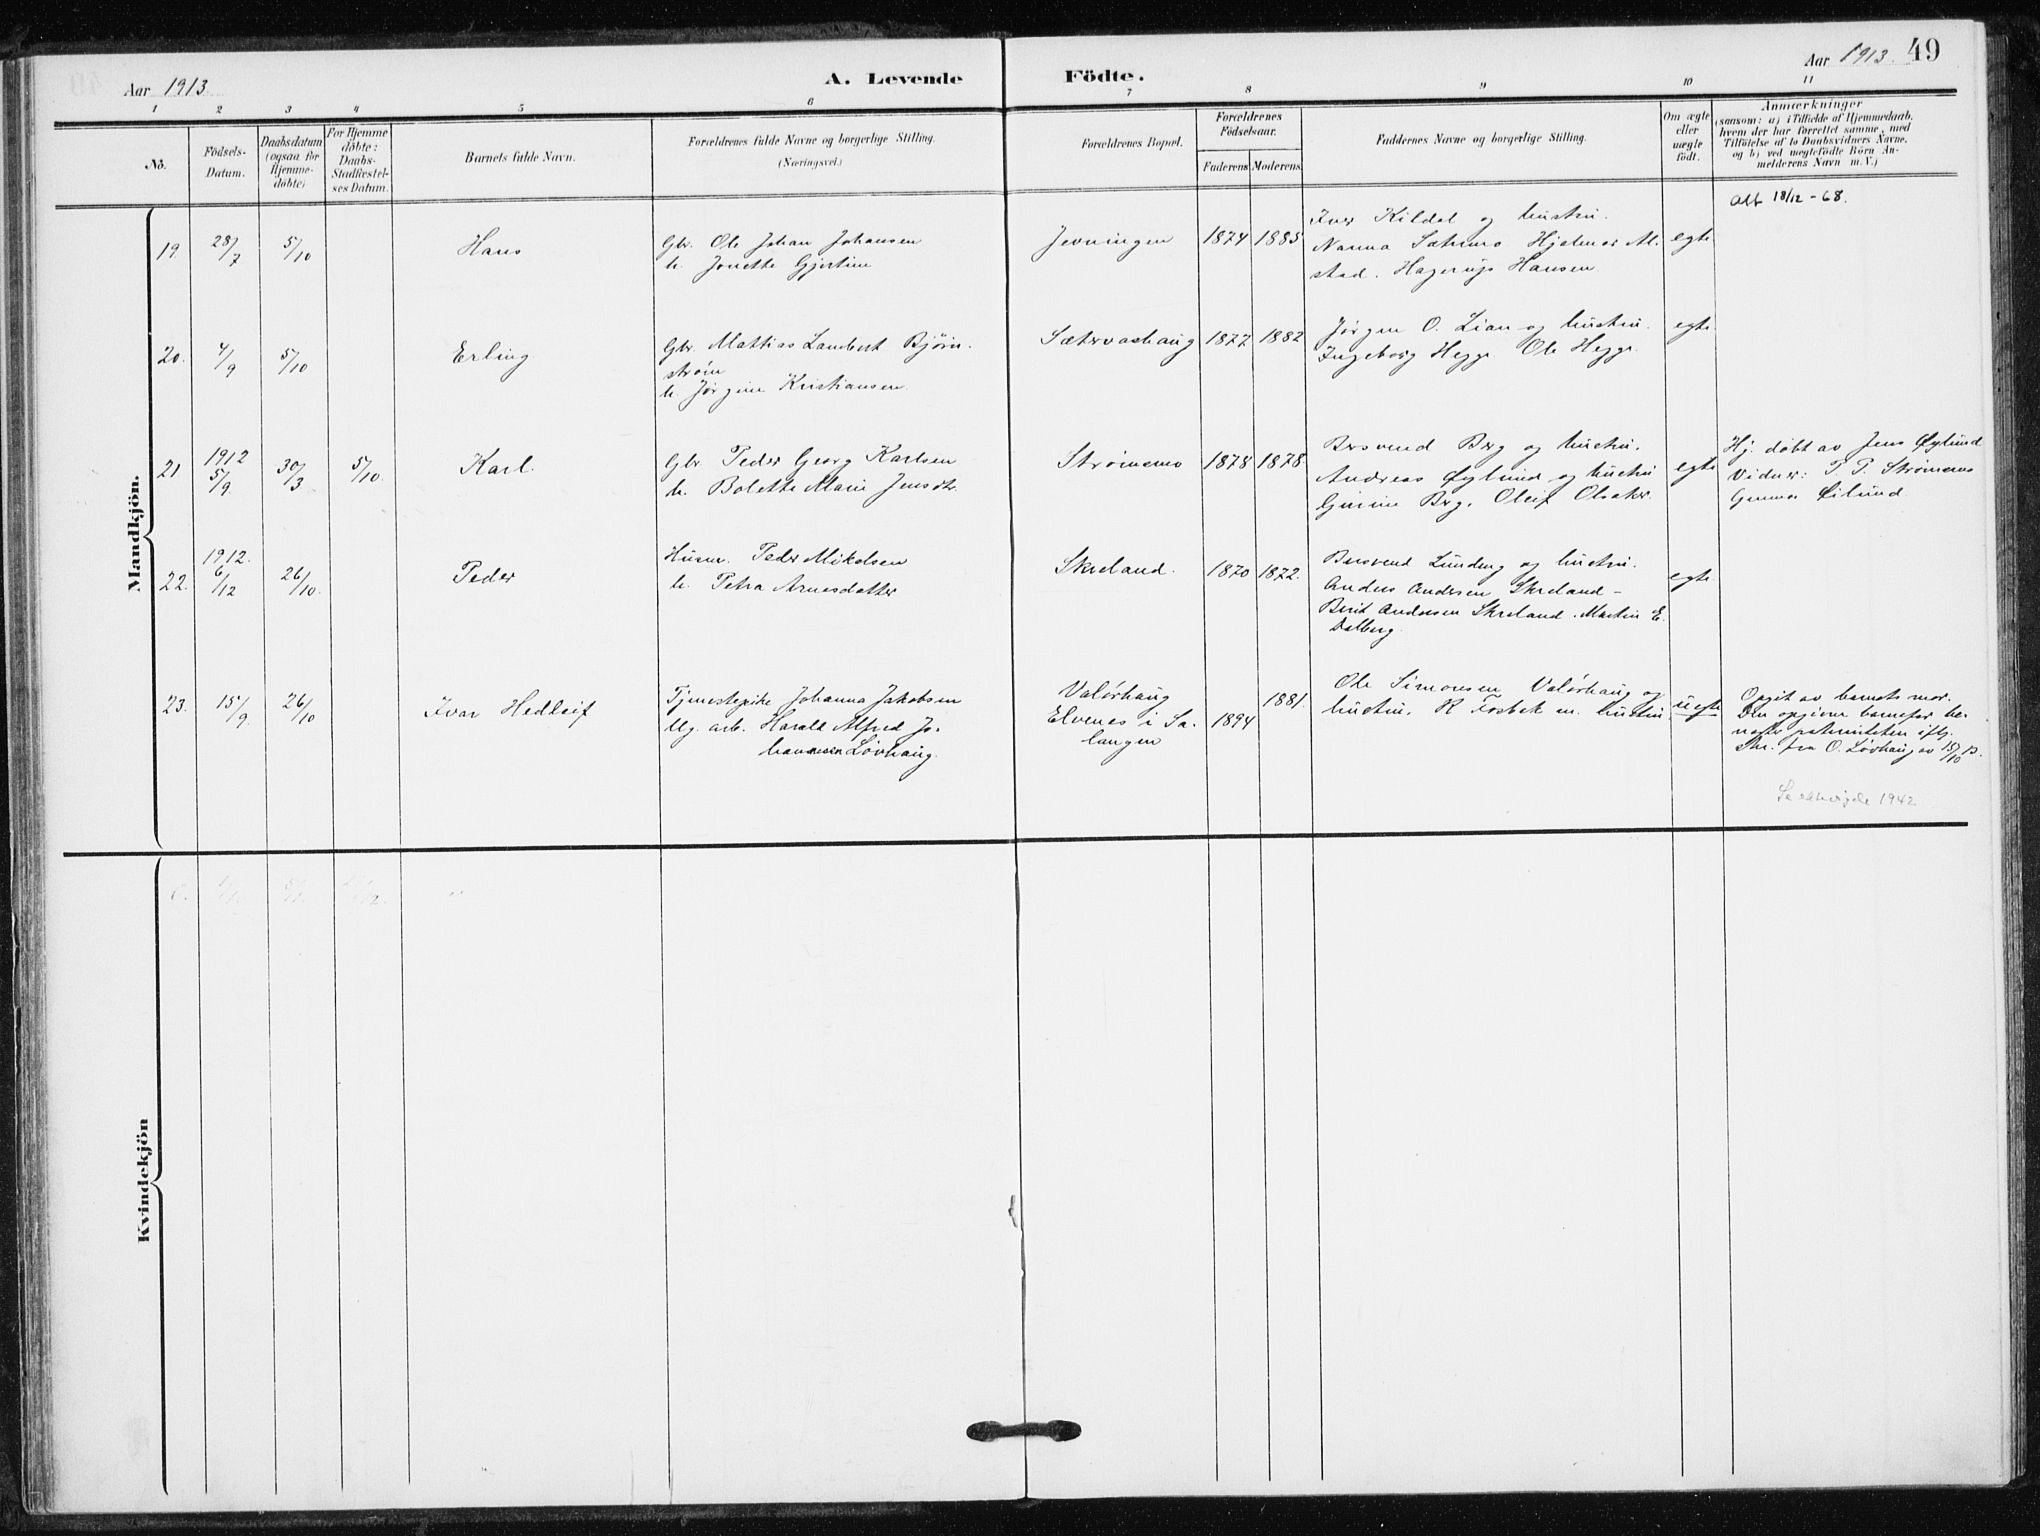 49
Aar 1913
A. Levende
Födte.
Aar 1913
1 2 3 4 5 6 7 8 9 10 11
No.
Födsels-
Datum.
Daabsdatum
(ogsaa for
Hjemme-
døbte)
For Hjemme
döbte:
Daabs-
Stadfæstel-
ses Datum.
Barnets fulde Navn.
Forældrenes fulde Navne og borgerlige Stilling.
(Næringsvei.)
Forældrenes Bopæl.
Forældrenes
Födselsaar.
Faderens Moderens
Faddernes Navne og borgerlige Stilling.
Om ægte
eller
uægte
födt.
Anmærkninger
(saasom: a) i Tilfælde af Hjemmedaab,
hvem der har forrettet samme, med
Tilföielse af to Daabsvidners Navne,
og b) ved uægtefödte Börn An-
melderens Navn m. V.)
Mandkjön.
19. 28/7 5/10 Hans
Gbr. Ole Johan Johansen
h. Jonette Gjertine
Jevningen 1874 1885
Iver Kildal og hustru.
Nanna Sætrmo Hjalmar Al-
stad. Hagerup Hansen
egte
Alt 18/12-68.
20. 4/9 5/10 Erling
Gbr. Mattias Lambert Bjørn-
strøm
h. Jørgine Kristiansen
Sætervashaug 1877 1882
Jørgen O. Lian og hustru.
Ingeborg Hegge Ole Hegge
egte
21 1912 5/9 30/3 5/10. Karl.
Gbr. Peder Georg Karlsen
h. Bolette Marie Jensdtr.
Strømsmo 1878 1878.
Bersvend Berg og hustru.
Andreas Øylund og hustru
Gurine Berg. Oleif Olsaker
egte
Hj. døbt av Jens Øylund
Vidner: P. P. Strømsmo
Gunnar Øilund.
22. 1912. 6/12 26/10. Peder
Husm. Peder Mikalsen
h. Petra Arnesdatter
Skreland. 1870 1872.
Bersvend Lundeng og hustru.
Anders Andersen Skreland -
Berit Andersen Skreland. Martin E.
Dalberg.
egte
23. 15/9. 26/10 Ivar Hedleif
Tjenestepike Johanna Jakobsen
Ug. arb. Harald Alfred Jo-
hannesen Løvhaug.
Valørhaug
Elvenes i Sa-
langen
1894 1881.
Ole Simonsen Valørhaug og
hustru. R Fosbak m. hustru
uegte
Opgit av barnets mor.
Den opgivne barnefar be-
negter paterniteten iflg.
skr. fra O. Løvhaug av 15/10 13.
1942
Kvindekjön